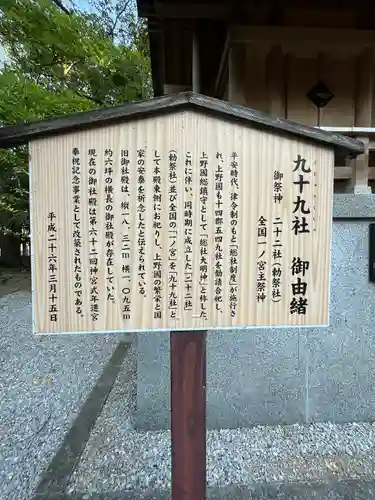 九十九社　御由緒
御祭神　二十二社（勅祭社）
全国一ノ宮主祭神
平安時代、律令制のもと「総社制度」が施行さ
れ、上野国も十四郡五四九社を勧請合祀し、
上野国総鎮守として「総社大明神」と称した。
これに伴い、同時期に成立した「二十二社」
（勅祭社）並び全国の「一ノ宮」を「九十九社」と
して本殿東側にお祀りし、上野国の繁栄と国
家の安泰を祈念したと伝えられている。
旧御社殿は、縦一八、三二m　横一、〇九五m
約六坪の横長の御社殿が存在していた。
現在の御社殿は第六十二回神宮式年遷宮
奉祝記念事業として改築されたものである。
平成二十六年三月十五日